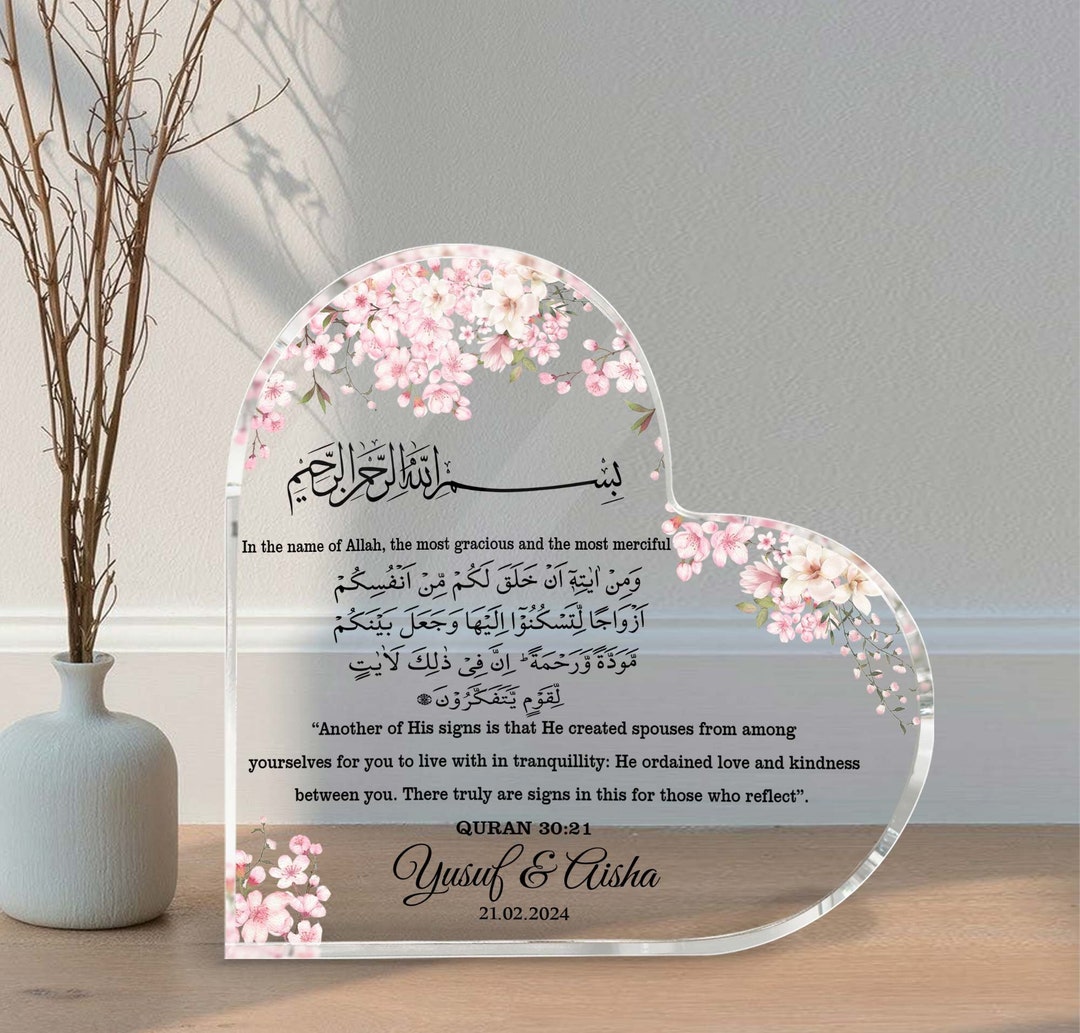 بِسْمِ اللّٰهِ الرَّحْمٰنِ الرَّحِيْمِ
In the name of Allah, the most gracious and the most merciful
وَمِنْ اٰيٰتِهٖٓ اَنْ خَلَقَ لَكُمْ مِّنْ اَنْفُسِكُمْ
اَزْوَاجًا لِّتَسْكُنُوْٓا اِلَيْهَا وَجَعَلَ بَيْنَكُمْ
مَّوَدَّةً وَّرَحْمَةً ؕ اِنَّ فِيْ ذٰلِكَ لَاٰيٰتٍ
لِّقَوْمٍ يَّتَفَكَّرُوْنَ
“Another of His signs is that He created spouses from among
yourselves for you to live with in tranquillity: He ordained love and kindness
between you. There truly are signs in this for those who reflect”.
QURAN 30:21
Yusuf & Aisha
21.02.2024